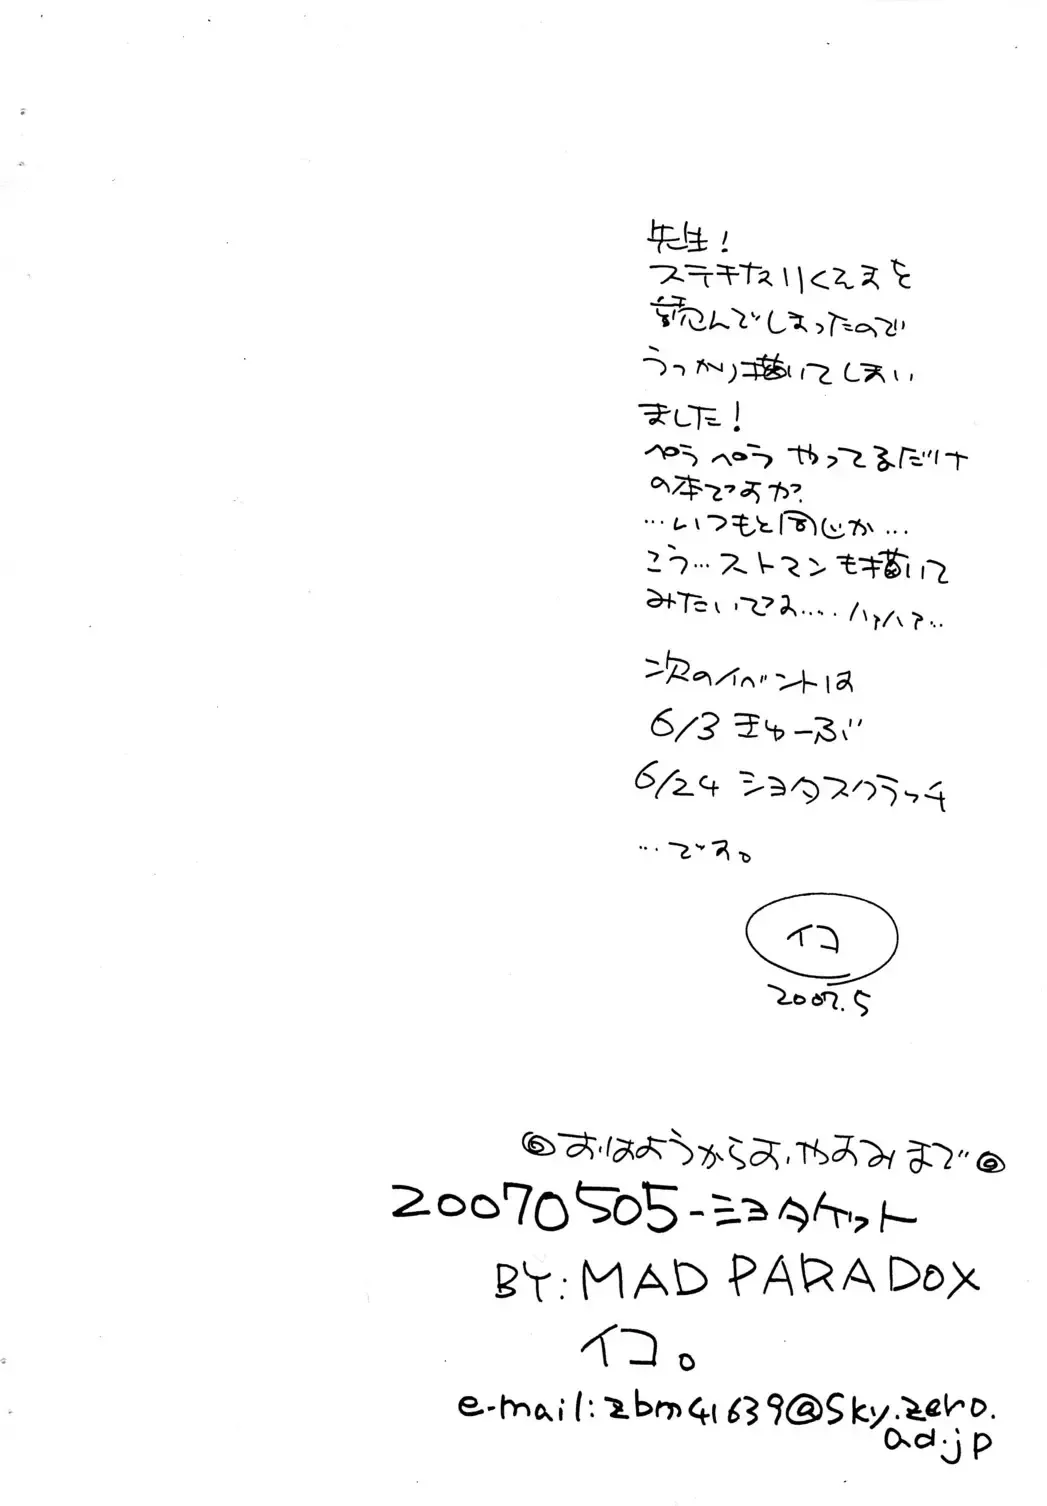 先生！
ステキなりくえすを
読んでしまったので
うっかり描いてしまい
ました！
ペラペラ やってるだけ
の本ですが?
…いつもと同じか…
こう…ストマンも描いて
みたいです…‥ハァハァ…
次のイベントは
6/3 きゅーぶ
6/24 ショタスクラッチ
…です。
イコ
2007.5
◎おはようからおやすみまで◎
20070505-ショタケット
BY: MAD PARADOX
イコ。
e-mail: zbm41639@sky.zero.
ad.jp